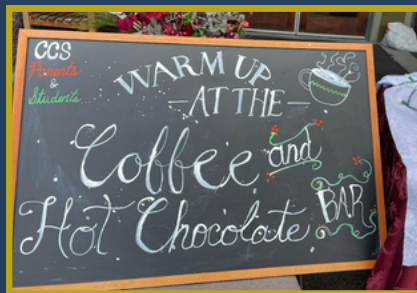 CCS
Parents
&
Students
WARM UP
-AT THE-
Coffee and
Hot Chocolate BAR